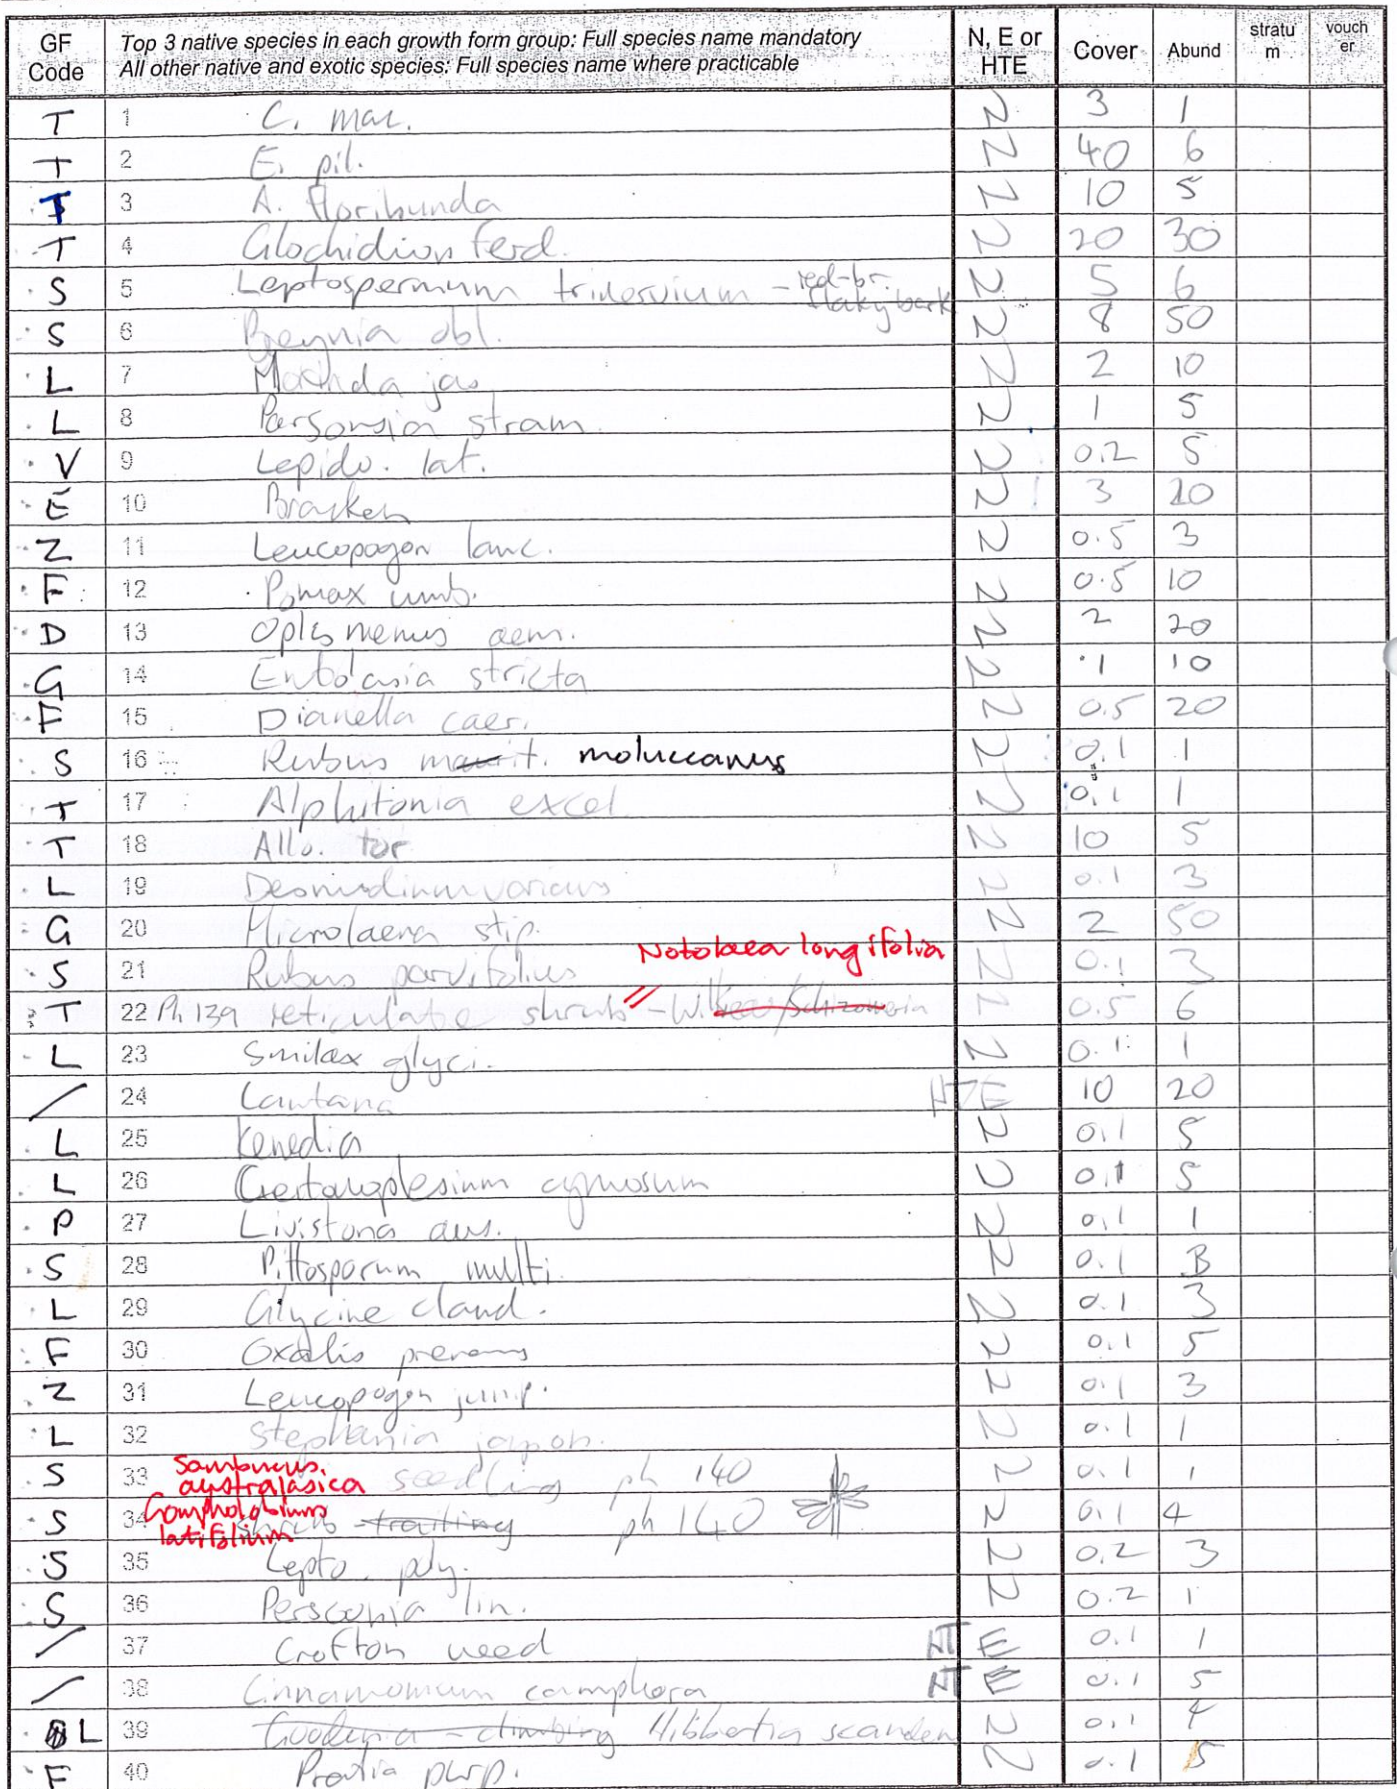 GF Code Top 3 native species in each growth form group: Full species name mandatory All other native and exotic species: Full species name where practicable N, E or HTE Cover Abund stratum voucher
T 1 C. mac. N 3 1
T 2 E. pil. N 40 6
T 3 A. floribunda N 10 5
T 4 Glochidion ferd. N 20 30
S 5 Leptospermum trinervium - red-br. flaky bark N 5 6
S 6 Breynia obl. N 8 50
L 7 Morinda jas N 2 10
L 8 Parsonsia stram. N 1 5
V 9 Lepido. lat. N 0.2 5
E 10 Bracken N 3 20
Z 11 Leucopogon lanc. N 0.5 3
F 12 Pomax umb. N 0.5 10
D 13 Oplismenus aem. N 2 20
G 14 Entolasia stricta N .1 10
F 15 Dianella caer. N 0.5 20
S 16 Rubus maurit. moluccanus N 0.1 1
T 17 Alphitonia excel N 0.1 1
T 18 Allo. tor N 10 5
L 19 Desmodium varians N 0.1 3
G 20 Microlaena stip. N 2 50
Notolaea longifolia
S 21 Rubus parvifolius N 0.1 3
T 22 Ph 139 reticulate shrub - Wilkiea/Schizomeria N 0.5 6
L 23 Smilax glyci. N 0.1 1
/ 24 Lantana HTE 10 20
L 25 Kenedia N 0.1 5
L 26 Geitonoplesium cymosum N 0.1 5
P 27 Livistona aus. N 0.1 1
S 28 Pittosporum multi. N 0.1 3
L 29 Glycine cland. N 0.1 3
F 30 Oxalis prenans N 0.1 5
Z 31 Leucopogon junip. N 0.1 3
L 32 Stephania japon. N 0.1 1
S 33 Sambucus. australasica seedling ph 140 N 0.1 1
S 34 Gompholobium latifolium shrub trailing ph 140 N 0.1 4
S 35 Lepto. poly. N 0.2 3
S 36 Persoonia lin. N 0.2 1
/ 37 Crofton weed HTE 0.1 1
/ 38 Cinnamomum camphora HTE 0.1 5
L 39 Goodenia - climbing Hibbertia scanden N 0.1 4
F 40 Pratia purp. N 0.1 5